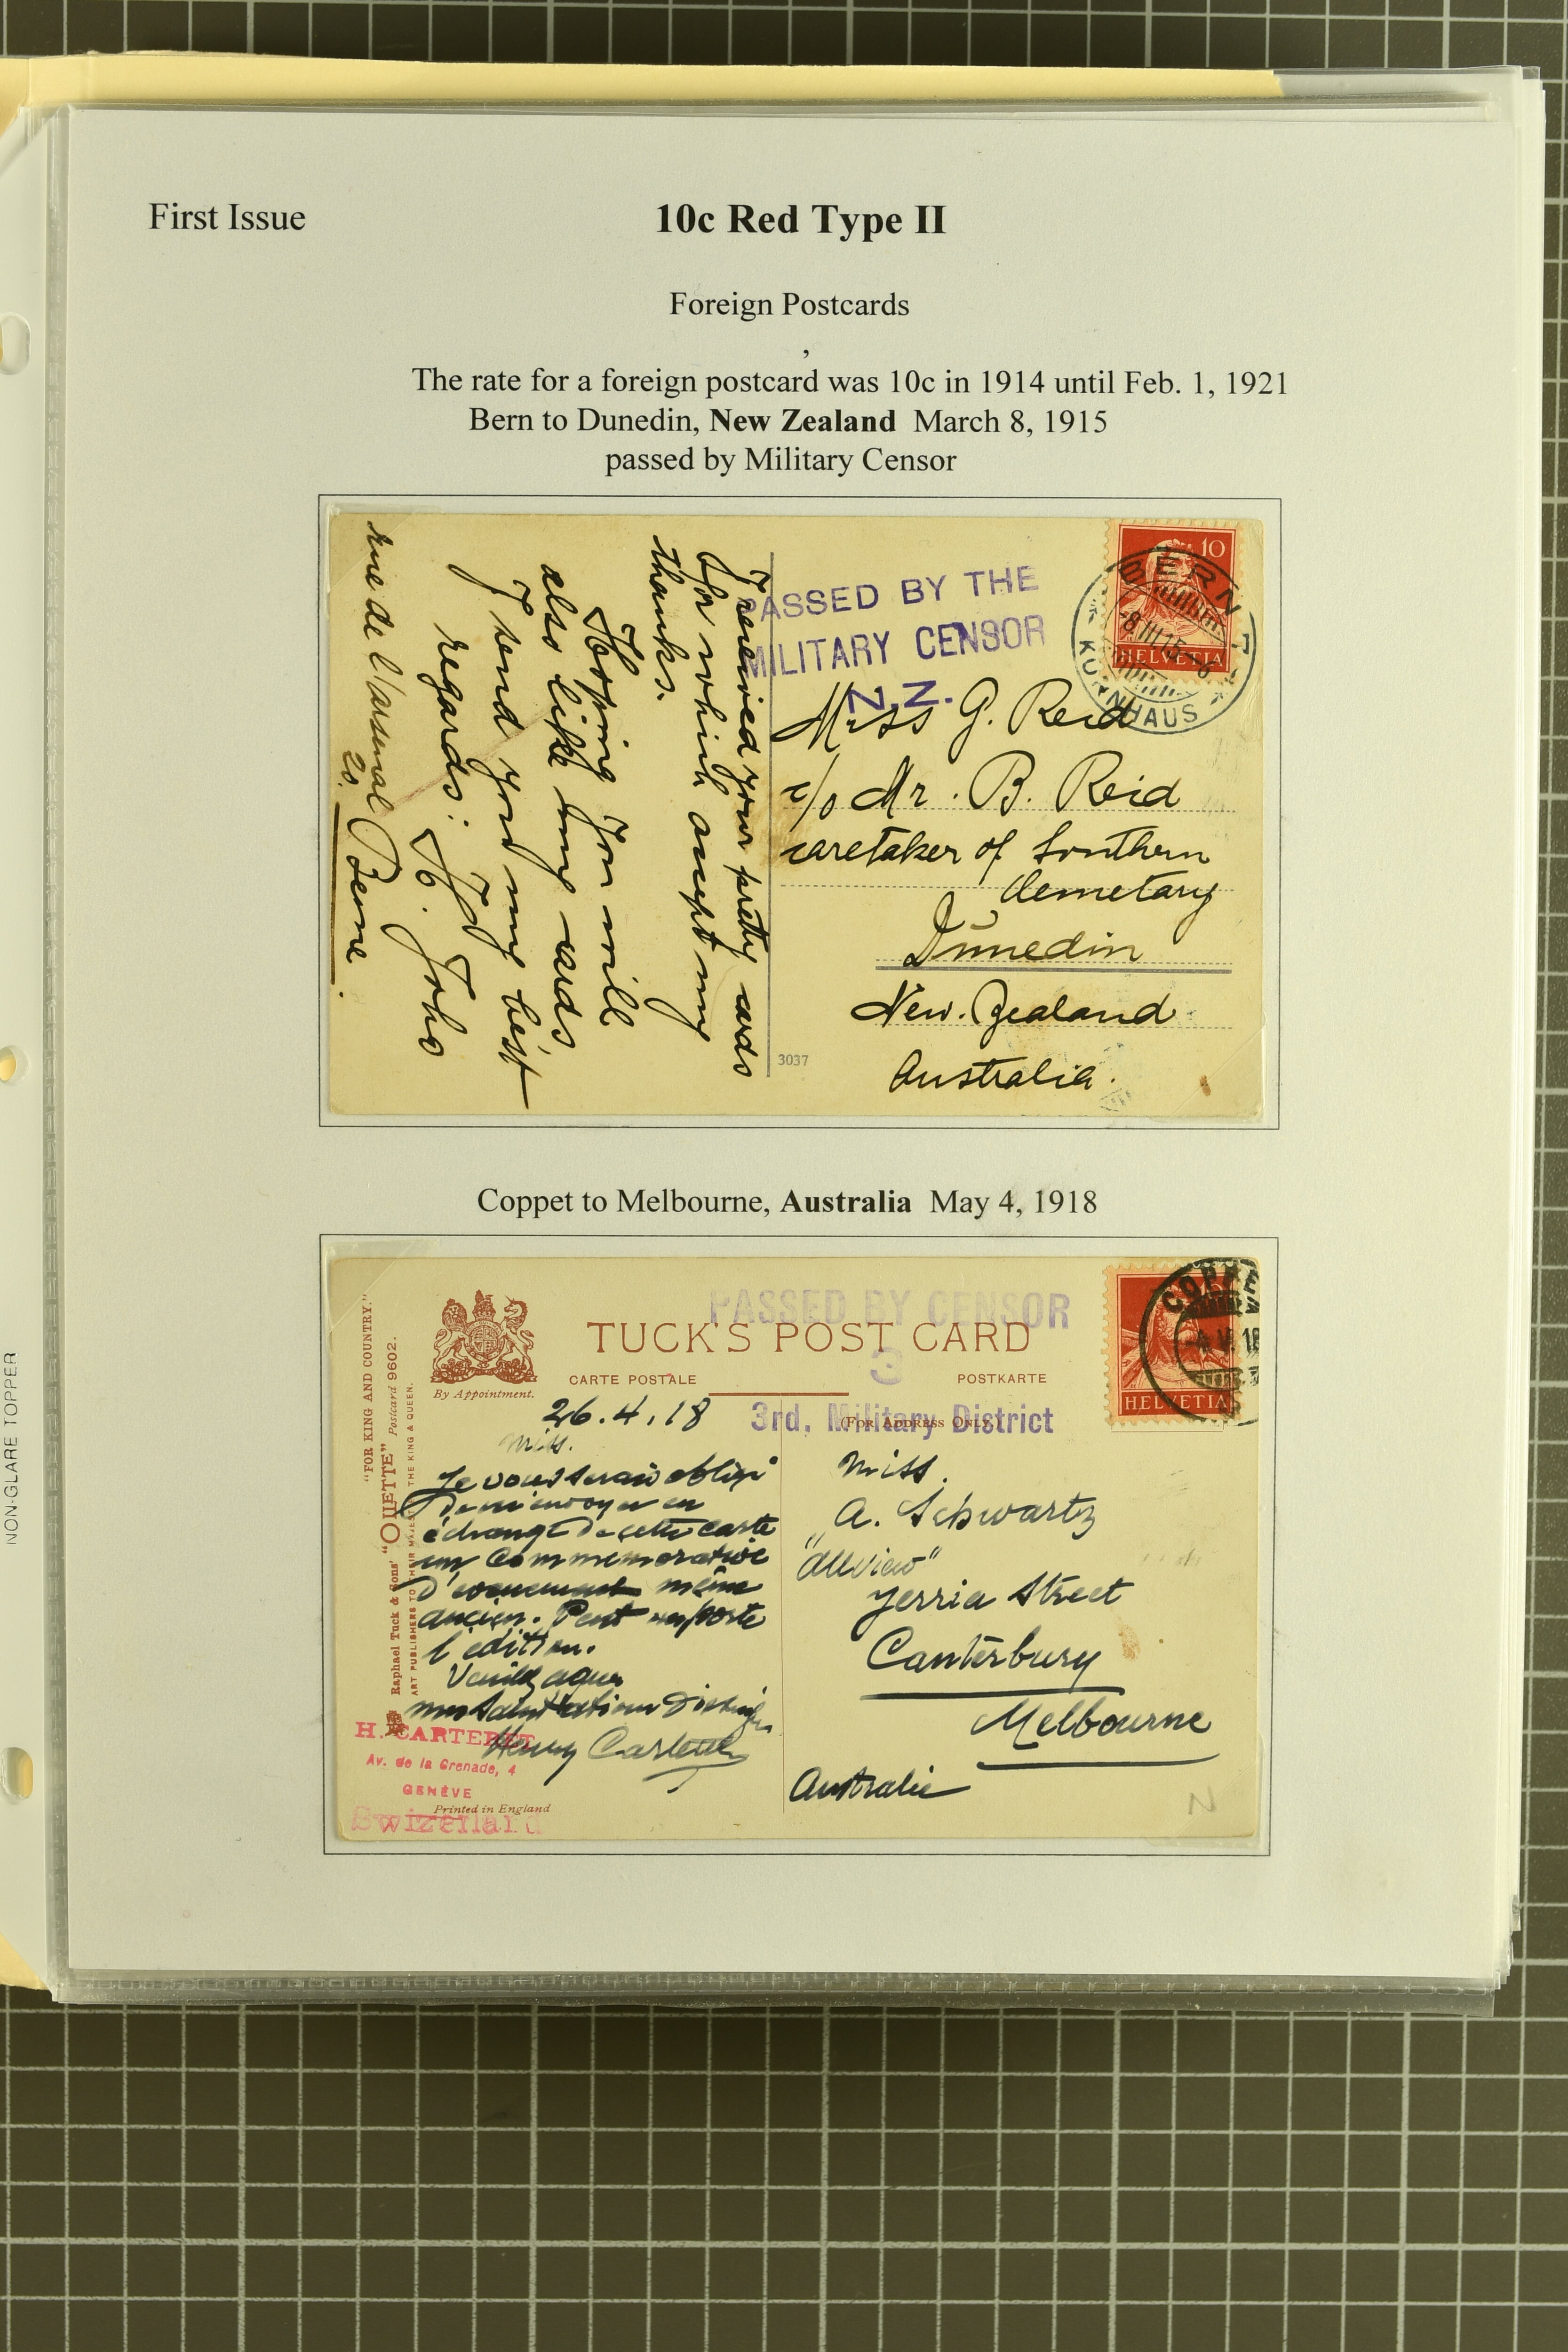 First Issue
10c Red Type II
Foreign Postcards
,
The rate for a foreign postcard was 10c in 1914 until Feb. 1, 1921
Bern to Dunedin, New Zealand March 8, 1915
passed by Military Censor
10
HELVETIA
BERN
-8.III.15.-6
KORNHAUS
PASSED BY THE
MILITARY CENSOR
N.Z.
Miss G. Reid
c/o Mr. B. Reid
caretaker of Southern
Cemetary
Dunedin
New. Zealand
Australia.
3037
I received your pretty cards
for which accept my
thanks.
Hoping you will
also like my cards
I send you my best
regards:
Joho
rue de l'arsenal
20.
Berne.
Coppet to Melbourne, Australia May 4, 1918
PASSED BY CENSOR
3
3rd. Military District
TUCK'S POST CARD
CARTE POSTALE
POSTKARTE
(FOR ADDRESS ONLY.)
By Appointment.
HELVETIA
COPPE
-4.V.18
"FOR KING AND COUNTRY."
Raphael Tuck & Sons' "OILETTE" Postcard 9602.
ART PUBLISHERS TO THEIR MAJESTIES THE KING & QUEEN.
26.4.18
Miss.
Je vous serais obligé
de m'envoyer en
échange de cette carte
une Commemorative
d'evenement même
ancien. Peut importe
l'édition.
Veuillez agréer
mes Salutations
Henry Carteret
H. CARTERET
Av. de la Grenade, 4
GENÈVE
Swizerland
Printed in England
Miss.
A. Schwartz
"Allview"
Yerria Street
Canterbury
Melbourne
Australie
N
NON-GLARE TOPPER